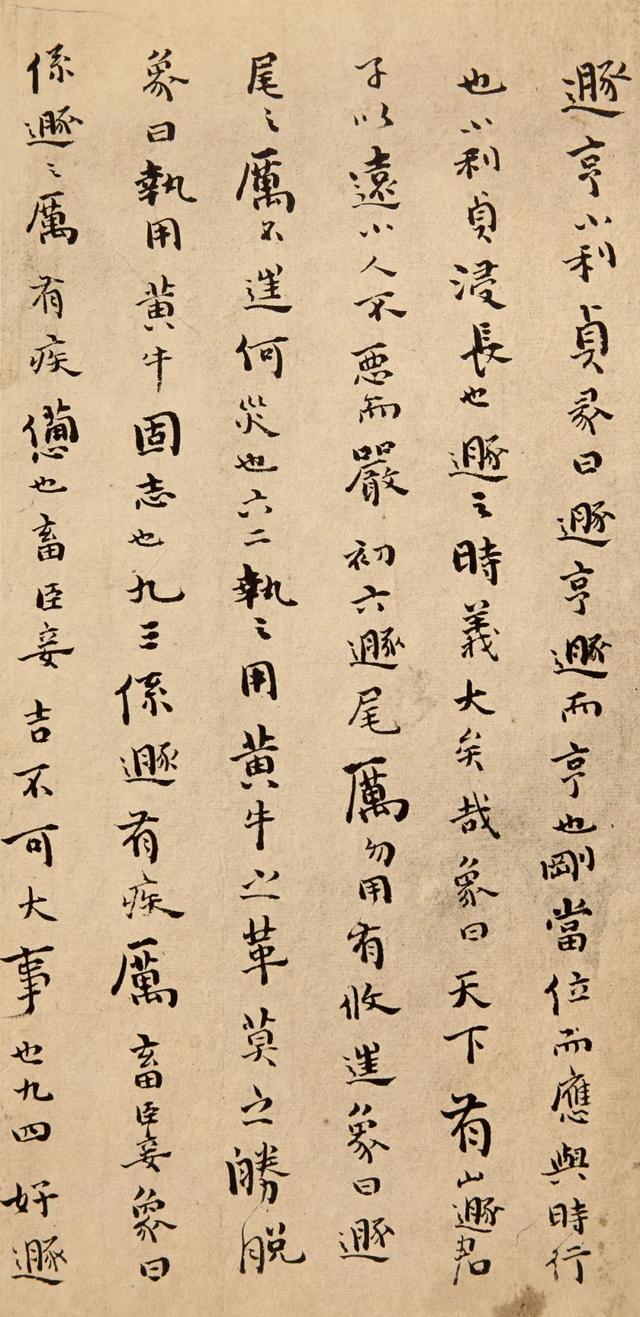 遯亨小利貞彖曰遯亨遯而亨也剛當位而應與時行
也小利貞浸長也遯之時義大矣哉象曰天下有山遯君
子以遠小人不惡而嚴初六遯尾厲勿用有攸進象曰遯
尾之厲不進何災也六二執之用黃牛之革莫之勝脫
象曰執用黃牛固志也九三係遯有疾厲畜臣妾象曰
係遯之厲有疾憊也畜臣妾吉不可大事也九四好遯